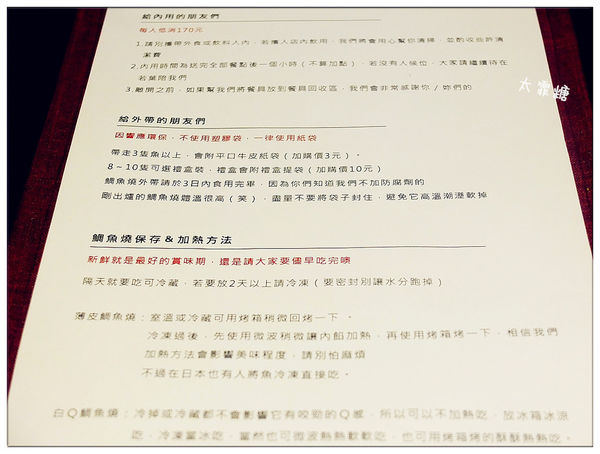 給內用的朋友們
每人低消170元
1.請別攜帶外食或飲料入內，若攜入店內飲用，我們將會用心幫你清掃，並酌收些許清
潔費
2.內用時間為送完全部餐點後一個小時（不算加點），若沒有人候位，大家請繼續待在
若葉陪我們
3.離開之前，如果幫我們將餐具放到餐具回收區，我們會非常感謝你／妳們的
太霏糖
給外帶的朋友們
因響應環保，不使用塑膠袋，一律使用紙袋
帶走3隻魚以上，會附平口牛皮紙袋（加購價3元）。
8～10隻可選禮盒裝，禮盒會附禮盒提袋（加購價10元）
鯛魚燒外帶請於3日內食用完畢，因為你們知道我們不加防腐劑的
剛出爐的鯛魚燒體溫很高（笑），盡量不要將袋子封住，避免它高溫潮溼軟掉
鯛魚燒保存&加熱方法
新鮮就是最好的賞味期，還是請大家要儘早吃完噢
隔天就要吃可冷藏，若要放2天以上請冷凍（要密封別讓水分跑掉）
薄皮鯛魚燒：室溫或冷藏可用烤箱稍微回烤一下。
冷凍過後，先使用微波稍微讓內餡加熱，再使用烤箱烤一下，相信我們
加熱方法會影響美味程度，請別怕麻煩
不過在日本也有人將魚冷凍直接吃。
白Q鯛魚燒：冷掉或冷藏都不會影響它有咬勁的Q感，所以可以不加熱吃，放冰箱冰涼
吃，冷凍當冰吃，當然也可微波熱熱軟軟吃，也可用烤箱烤的酥酥熱熱吃。